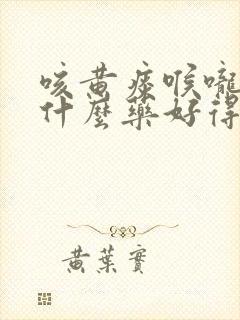 咳黄痰喉嚨
什麼藥好得
黃葉實